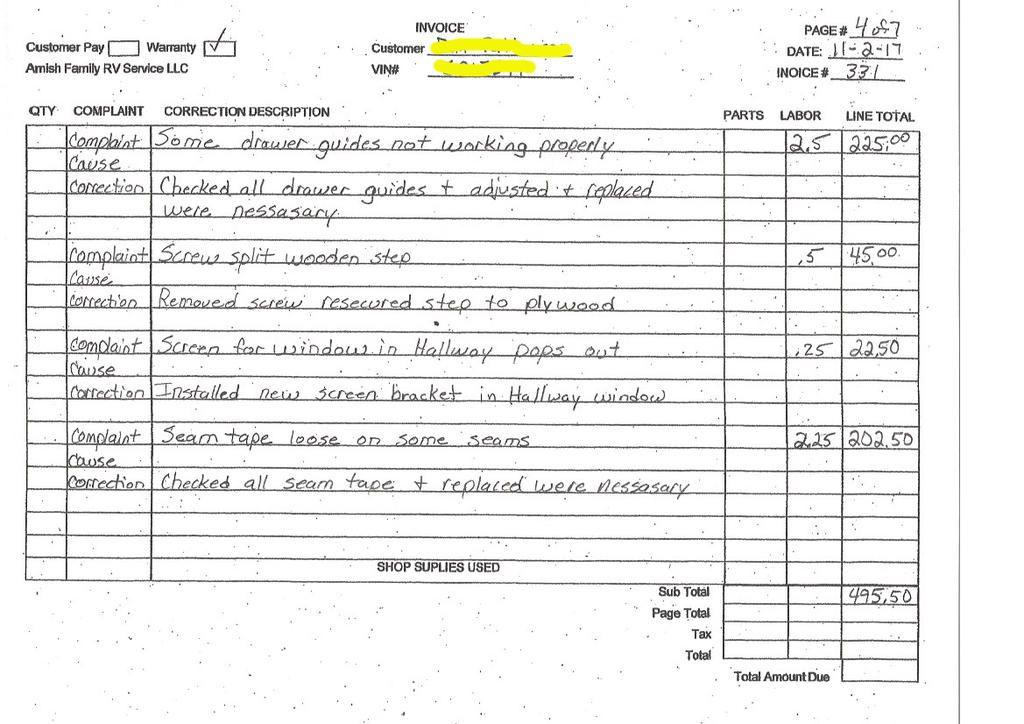 INVOICE
PAGE# 4 of 7
Customer Pay Warranty ✓
Customer
DATE: 11-2-17
Amish Family RV Service LLC
VIN#
INOICE# 331
QTY COMPLAINT CORRECTION DESCRIPTION PARTS LABOR LINE TOTAL
Complaint Some drawer guides not working properly 2.5 225.00
Cause
Correction Checked all drawer guides + adjusted + replaced
were nessasary.
Complaint Screw split wooden step .5 45.00
Cause
Correction Removed screw resecured step to plywood
Complaint Screen for window in Hallway pops out .25 22.50
Cause
Correction Installed new screen bracket in Hallway window
Complaint Seam tape loose on some seams 2.25 202.50
Cause
Correction Checked all seam tape + replaced were nessasary
SHOP SUPLIES USED
Sub Total 495.50
Page Total
Tax
Total
Total Amount Due